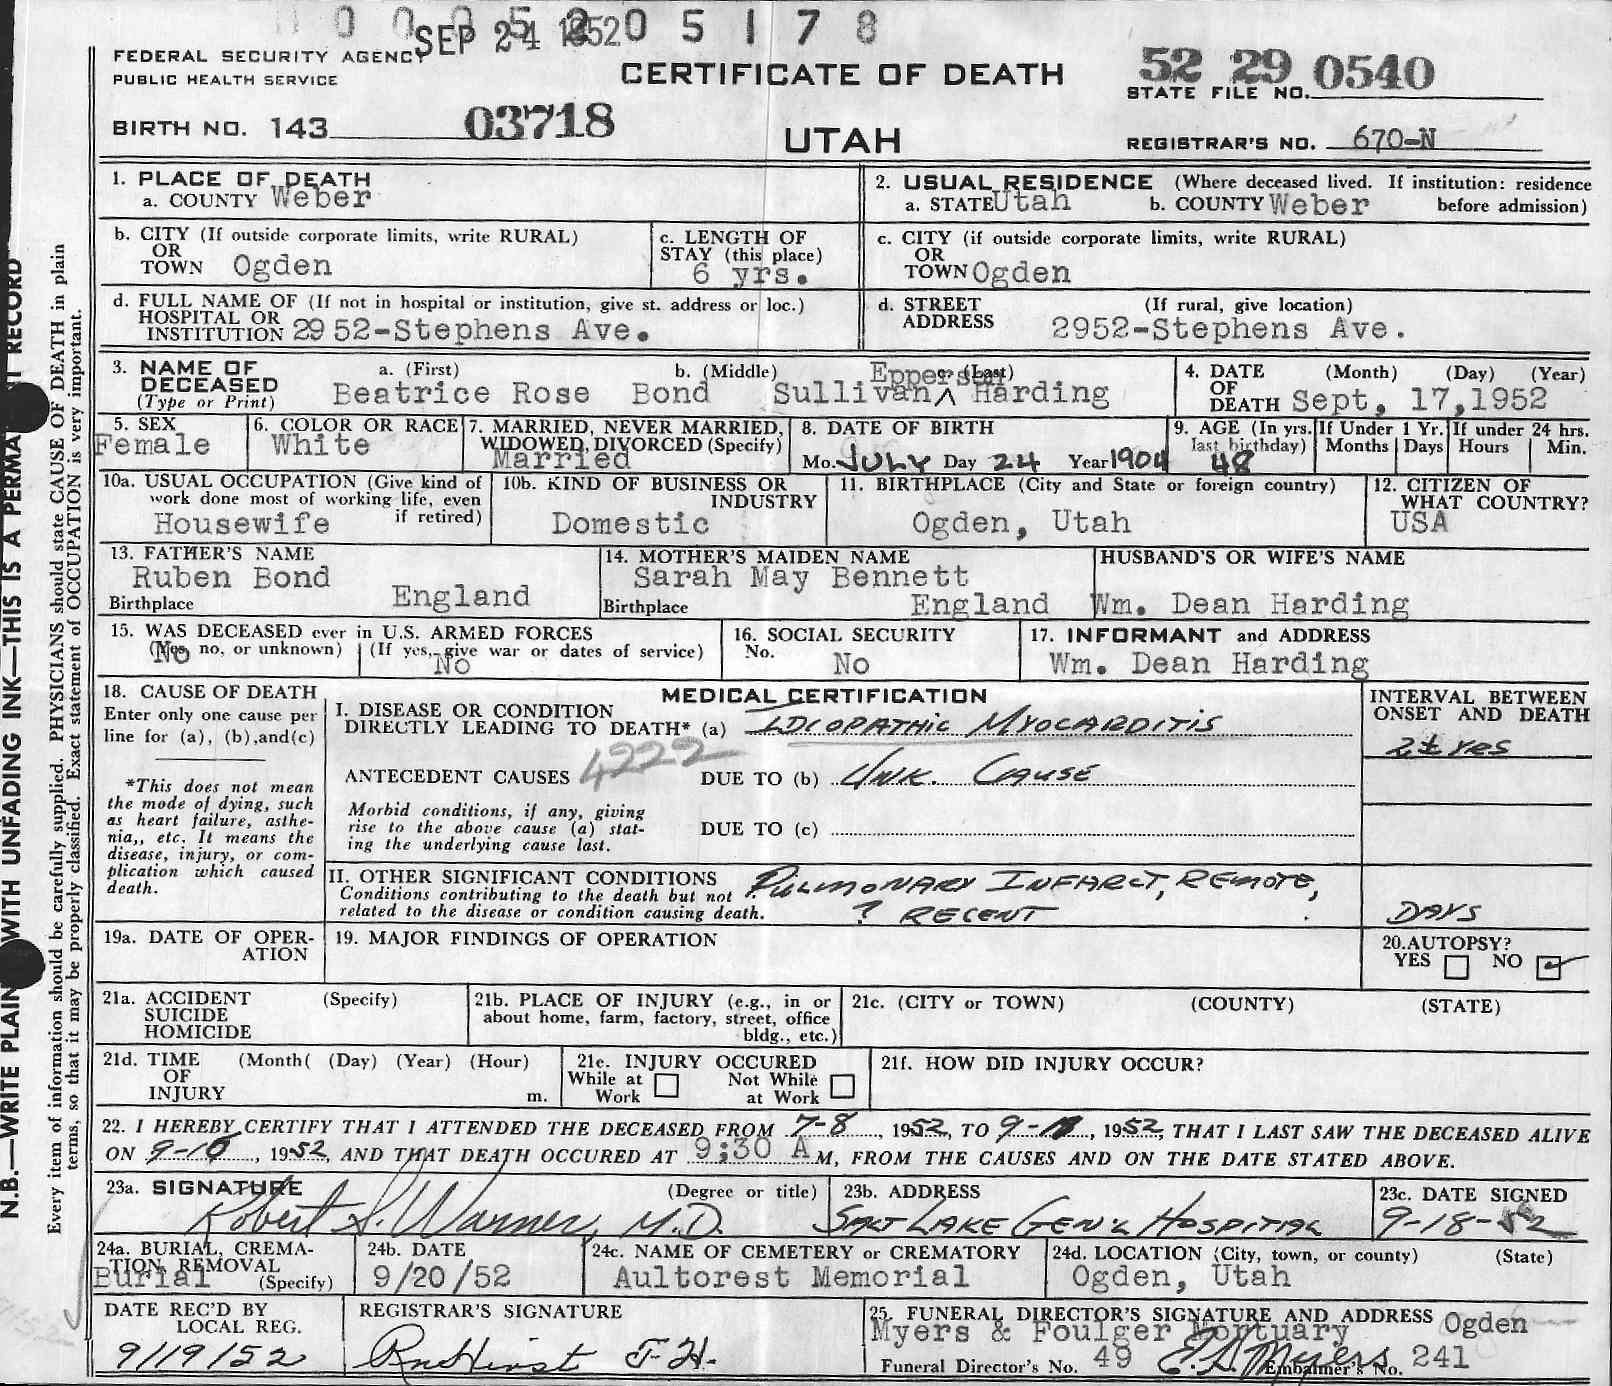 0 0 0 5 2 0 5 1 7 8
SEP 24 1952
FEDERAL SECURITY AGENCY
PUBLIC HEALTH SERVICE
CERTIFICATE OF DEATH
52 29 0540
STATE FILE NO.
BIRTH NO. 143 03718
UTAH
REGISTRAR'S NO. 670-N
1. PLACE OF DEATH
a. COUNTY Weber
2. USUAL RESIDENCE (Where deceased lived. If institution: residence
a. STATE Utah b. COUNTY Weber before admission)
b. CITY (If outside corporate limits, write RURAL)
OR
TOWN Ogden
c. LENGTH OF
STAY (this place)
6 yrs.
c. CITY (if outside corporate limits, write RURAL)
OR
TOWN Ogden
d. FULL NAME OF (If not in hospital or institution, give st. address or loc.)
HOSPITAL OR
INSTITUTION 2952-Stephens Ave.
d. STREET (If rural, give location)
ADDRESS 2952-Stephens Ave.
3. NAME OF a. (First) b. (Middle) c. (Last)
DECEASED
(Type or Print) Beatrice Rose Bond Sullivan ^ Epperson Harding
4. DATE (Month) (Day) (Year)
OF
DEATH Sept, 17,1952
5. SEX
Female
6. COLOR OR RACE
White
7. MARRIED, NEVER MARRIED,
WIDOWED, DIVORCED (Specify)
Married
8. DATE OF BIRTH
Mo. JULY Day 24 Year 1904
9. AGE (In yrs.
last birthday)
48
If Under 1 Yr.
Months Days
If under 24 hrs.
Hours Min.
10a. USUAL OCCUPATION (Give kind of
work done most of working life, even
if retired)
Housewife
10b. KIND OF BUSINESS OR
INDUSTRY
Domestic
11. BIRTHPLACE (City and State or foreign country)
Ogden, Utah
12. CITIZEN OF
WHAT COUNTRY?
USA
13. FATHER'S NAME
Ruben Bond
Birthplace England
14. MOTHER'S MAIDEN NAME
Sarah May Bennett
Birthplace England
HUSBAND'S OR WIFE'S NAME
Wm. Dean Harding
15. WAS DECEASED ever in U.S. ARMED FORCES
(Yes, no, or unknown) (If yes, give war or dates of service)
No No
16. SOCIAL SECURITY
No.
No
17. INFORMANT and ADDRESS
Wm. Dean Harding
18. CAUSE OF DEATH
Enter only one cause per
line for (a), (b),and(c)
*This does not mean
the mode of dying, such
as heart failure, asthe-
nia,, etc. It means the
disease, injury, or com-
plication which caused
death.
MEDICAL CERTIFICATION
I. DISEASE OR CONDITION
DIRECTLY LEADING TO DEATH* (a) IDIOPATHIC MYOCARDITIS
4222
ANTECEDENT CAUSES DUE TO (b) UNK. CAUSE
Morbid conditions, if any, giving
rise to the above cause (a) stat-
ing the underlying cause last.
DUE TO (c)
INTERVAL BETWEEN
ONSET AND DEATH
2± yrs
II. OTHER SIGNIFICANT CONDITIONS
Conditions contributing to the death but not
related to the disease or condition causing death.
PULMONARY INFARCT, REMOTE,
? RECENT
DAYS
19a. DATE OF OPER-
ATION
19. MAJOR FINDINGS OF OPERATION
20.AUTOPSY?
YES NO
21a. ACCIDENT (Specify)
SUICIDE
HOMICIDE
21b. PLACE OF INJURY (e.g., in or
about home, farm, factory, street, office
bldg., etc.)
21c. (CITY or TOWN) (COUNTY) (STATE)
21d. TIME (Month( (Day) (Year) (Hour)
OF
INJURY m.
21e. INJURY OCCURED
While at Not While
Work at Work
21f. HOW DID INJURY OCCUR?
22. I HEREBY CERTIFY THAT I ATTENDED THE DECEASED FROM 7-8, 1952, TO 9-, 1952, THAT I LAST SAW THE DECEASED ALIVE
ON 9-10, 1952, AND THAT DEATH OCCURED AT 9:30 A M, FROM THE CAUSES AND ON THE DATE STATED ABOVE.
23a. SIGNATURE (Degree or title)
Robert S. Warner, M.D.
23b. ADDRESS
SALT LAKE GEN'L HOSPITAL
23c. DATE SIGNED
9-18-52
24a. BURIAL, CREMA-
TION, REMOVAL
Burial (Specify)
24b. DATE
9/20/52
24c. NAME OF CEMETERY or CREMATORY
Aultorest Memorial
24d. LOCATION (City, town, or county) (State)
Ogden, Utah
DATE REC'D BY
LOCAL REG.
9/19/52
REGISTRAR'S SIGNATURE
25. FUNERAL DIRECTOR'S SIGNATURE AND ADDRESS Ogden
Myers & Foulger Mortuary
Funeral Director's No. 49 E. S. Myers Embalmer's No. 241
N.B.—WRITE PLAIN WITH UNFADING INK—THIS IS A PERMA T RECORD
Every item of information should be carefully supplied. PHYSICIANS should state CAUSE OF DEATH in plain
terms, so that it may be properly classified. Exact statement of OCCUPATION is very important.